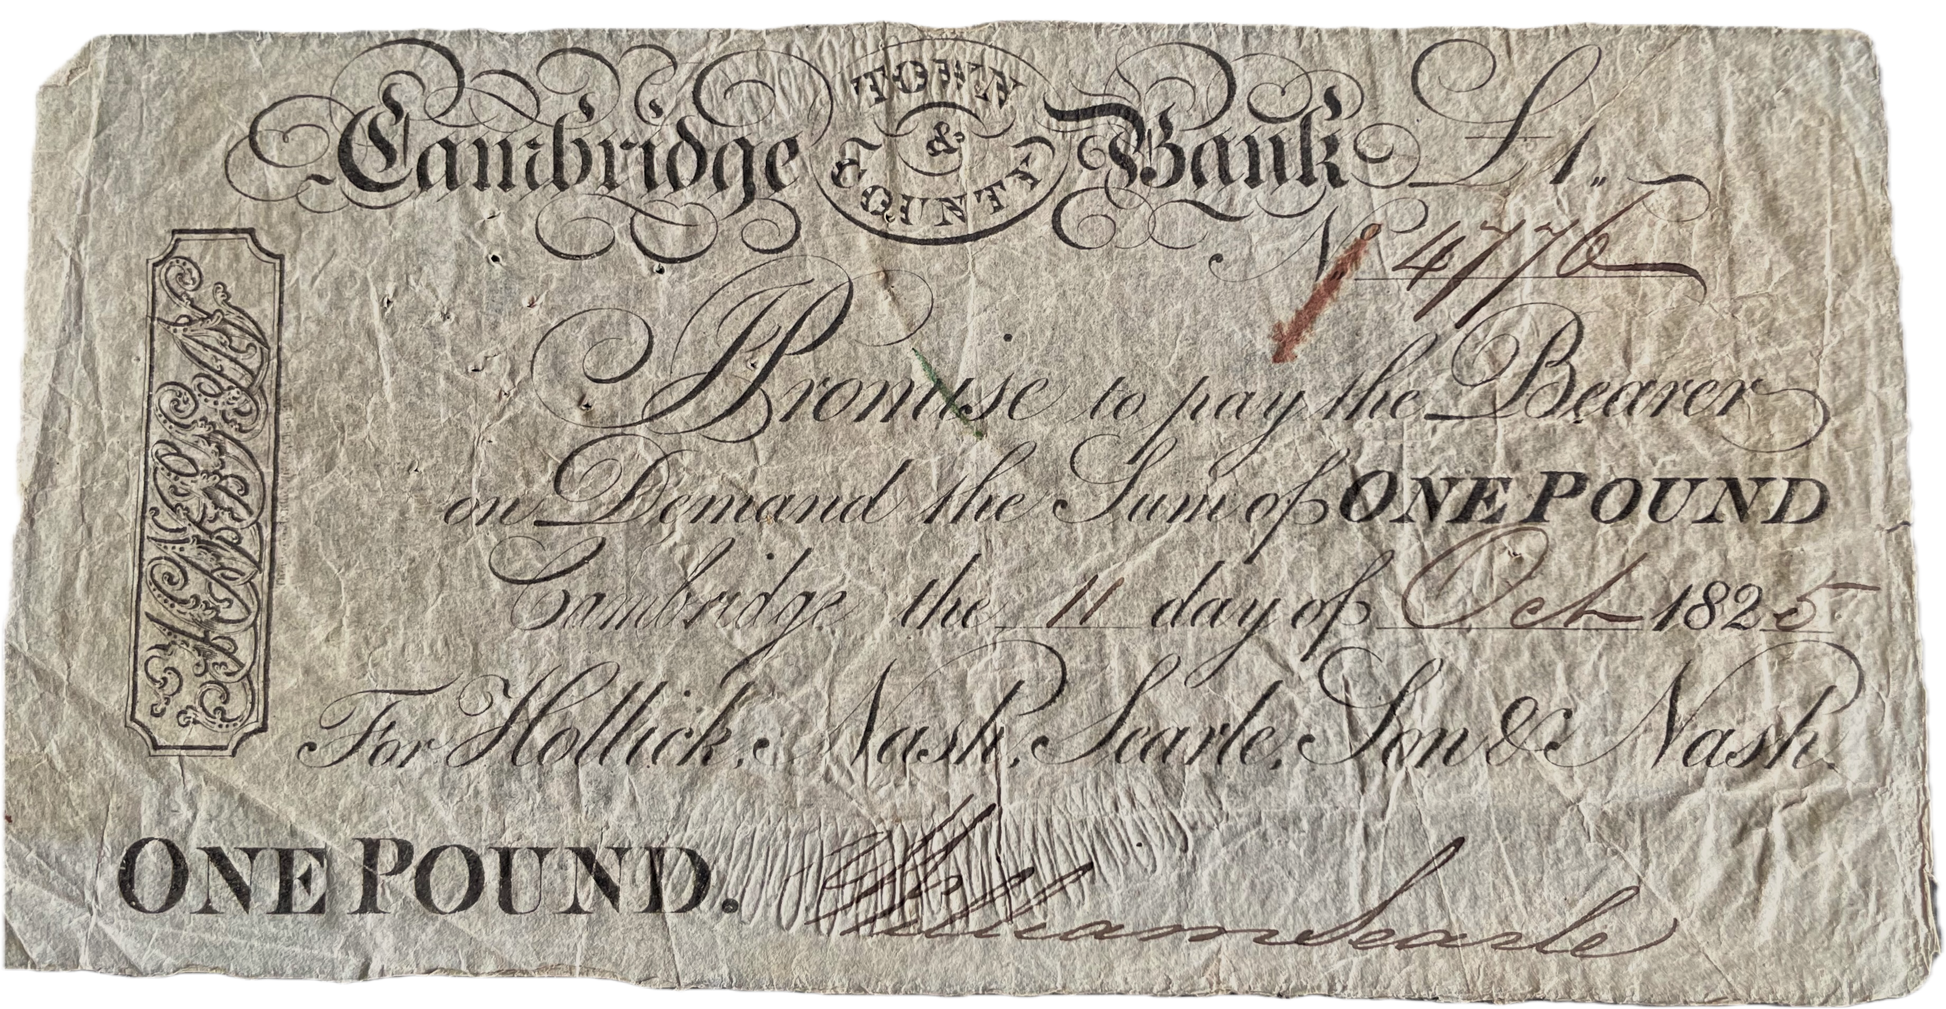 Cambridge TOWN & COUNTY Bank £1.
No 4776
I Promise to pay the Bearer
on Demand the Sum of ONE POUND
Cambridge the 11 day of Oct 1825
For Hollick, Nash, Searle, Son & Nash.
ONE POUND. William Searle